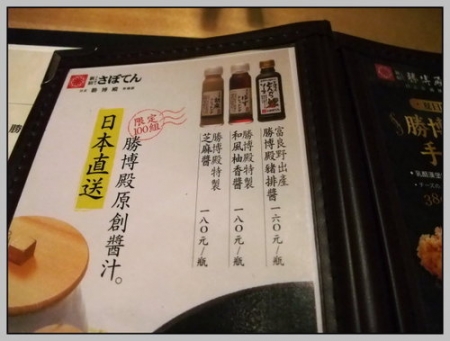 新宿 さぼてん
勝博殿
限定
100組
日本直送
勝博殿原創醬汁。
富良野出產
勝博殿豬排醬 一六〇元/瓶
勝博殿特製
和風柚香醬 一八〇元/瓶
勝博殿特製
芝麻醬 一八〇元/瓶
勝
勝博
手
38